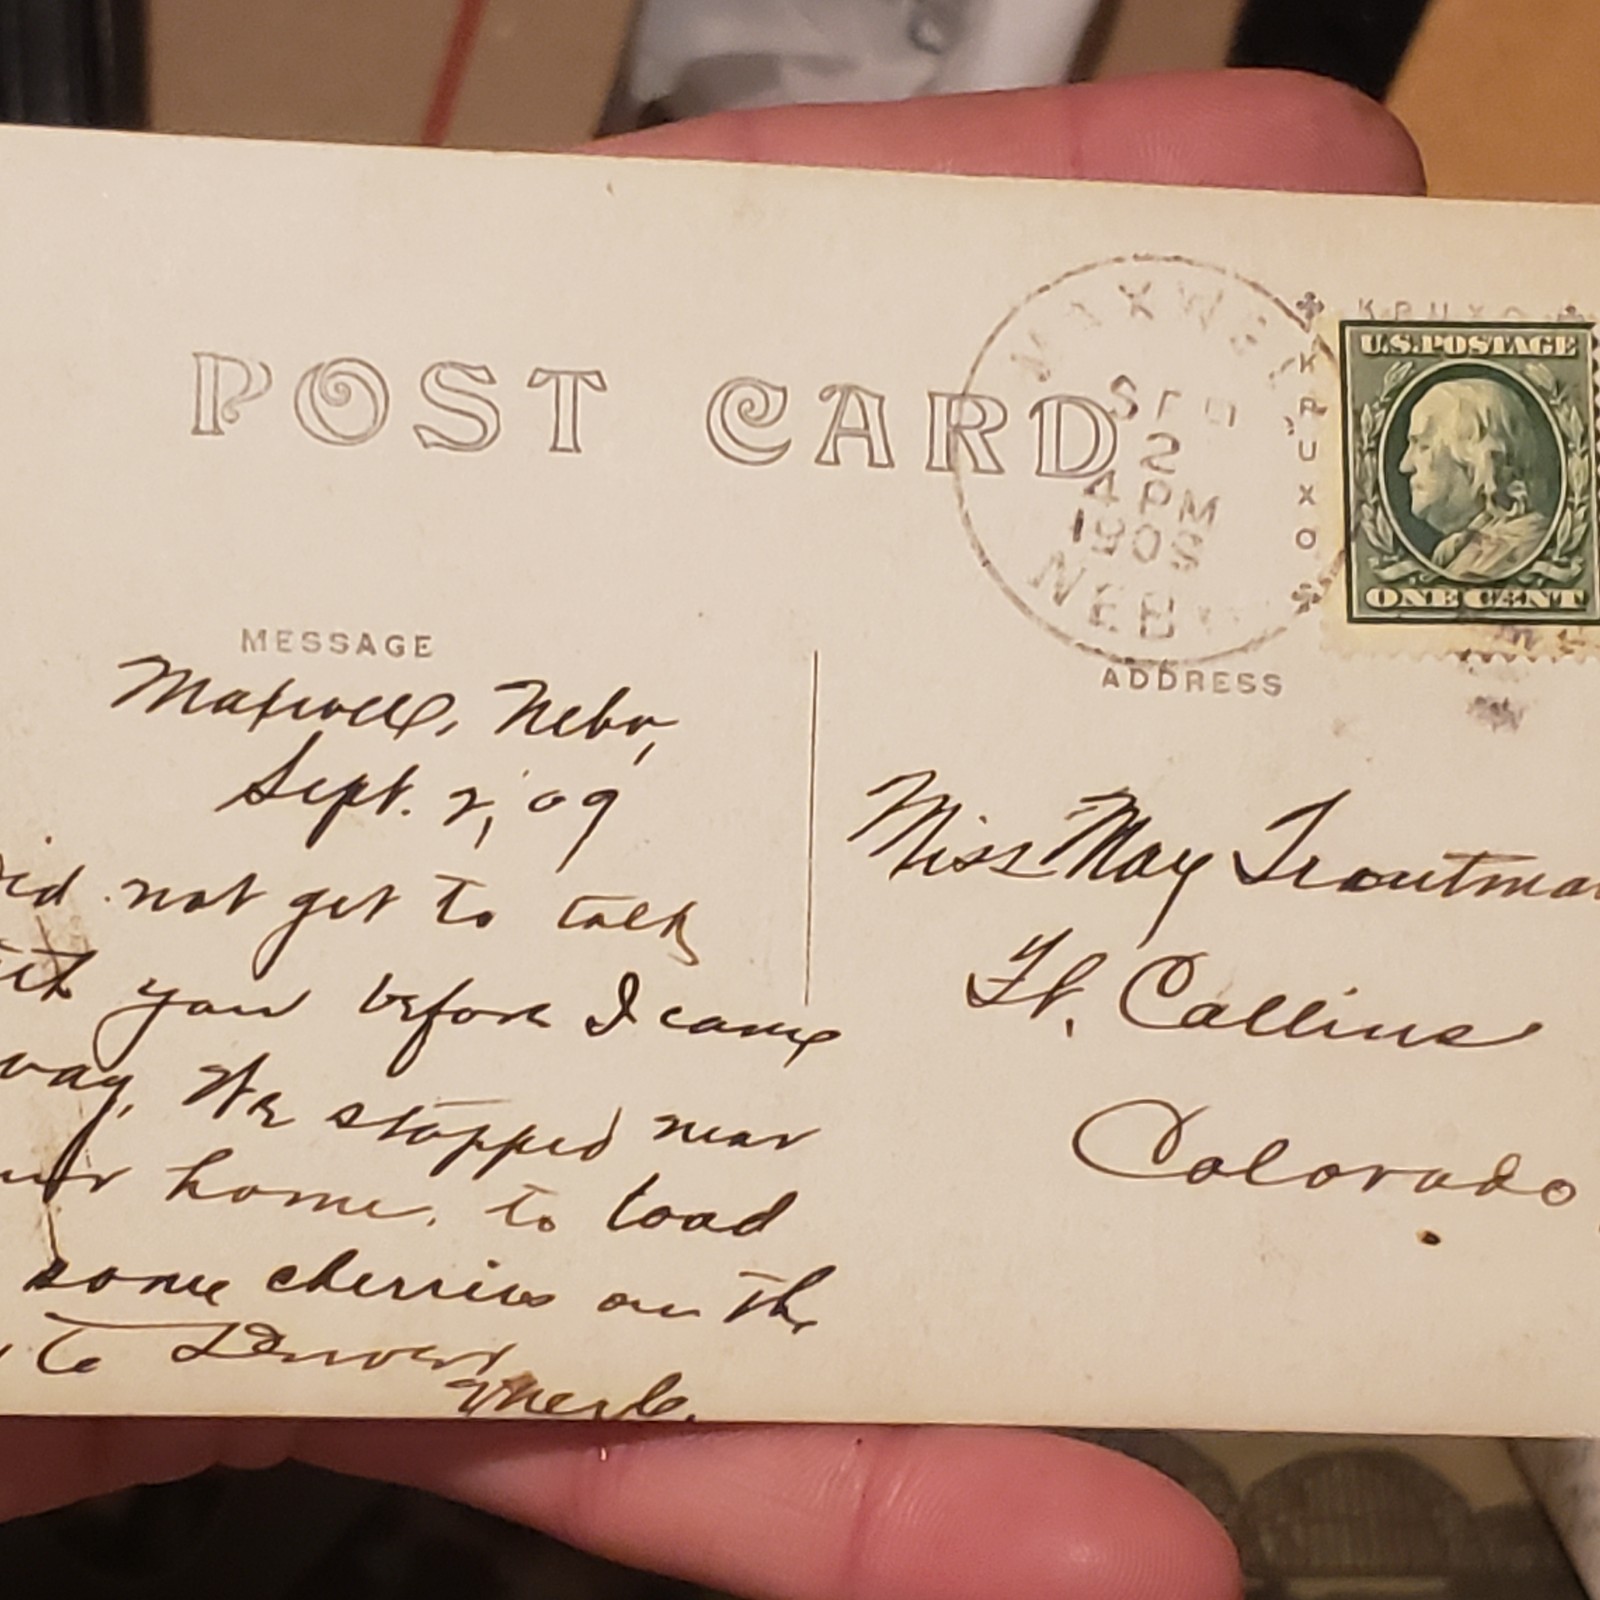 POST CARD
MAXWELL
SEP
2
4 PM
1909
NEB
KRUXO
KRUXO
U.S.POSTAGE
ONE CENT
MESSAGE
Maxwell, Nebr,
Sept. 2, 09
Did not get to talk
with you before I came
away, We stopped near
your home, to load
some cherries on the
to Denver
Merle.
ADDRESS
Miss May Troutman
Ft. Collins
Colorado